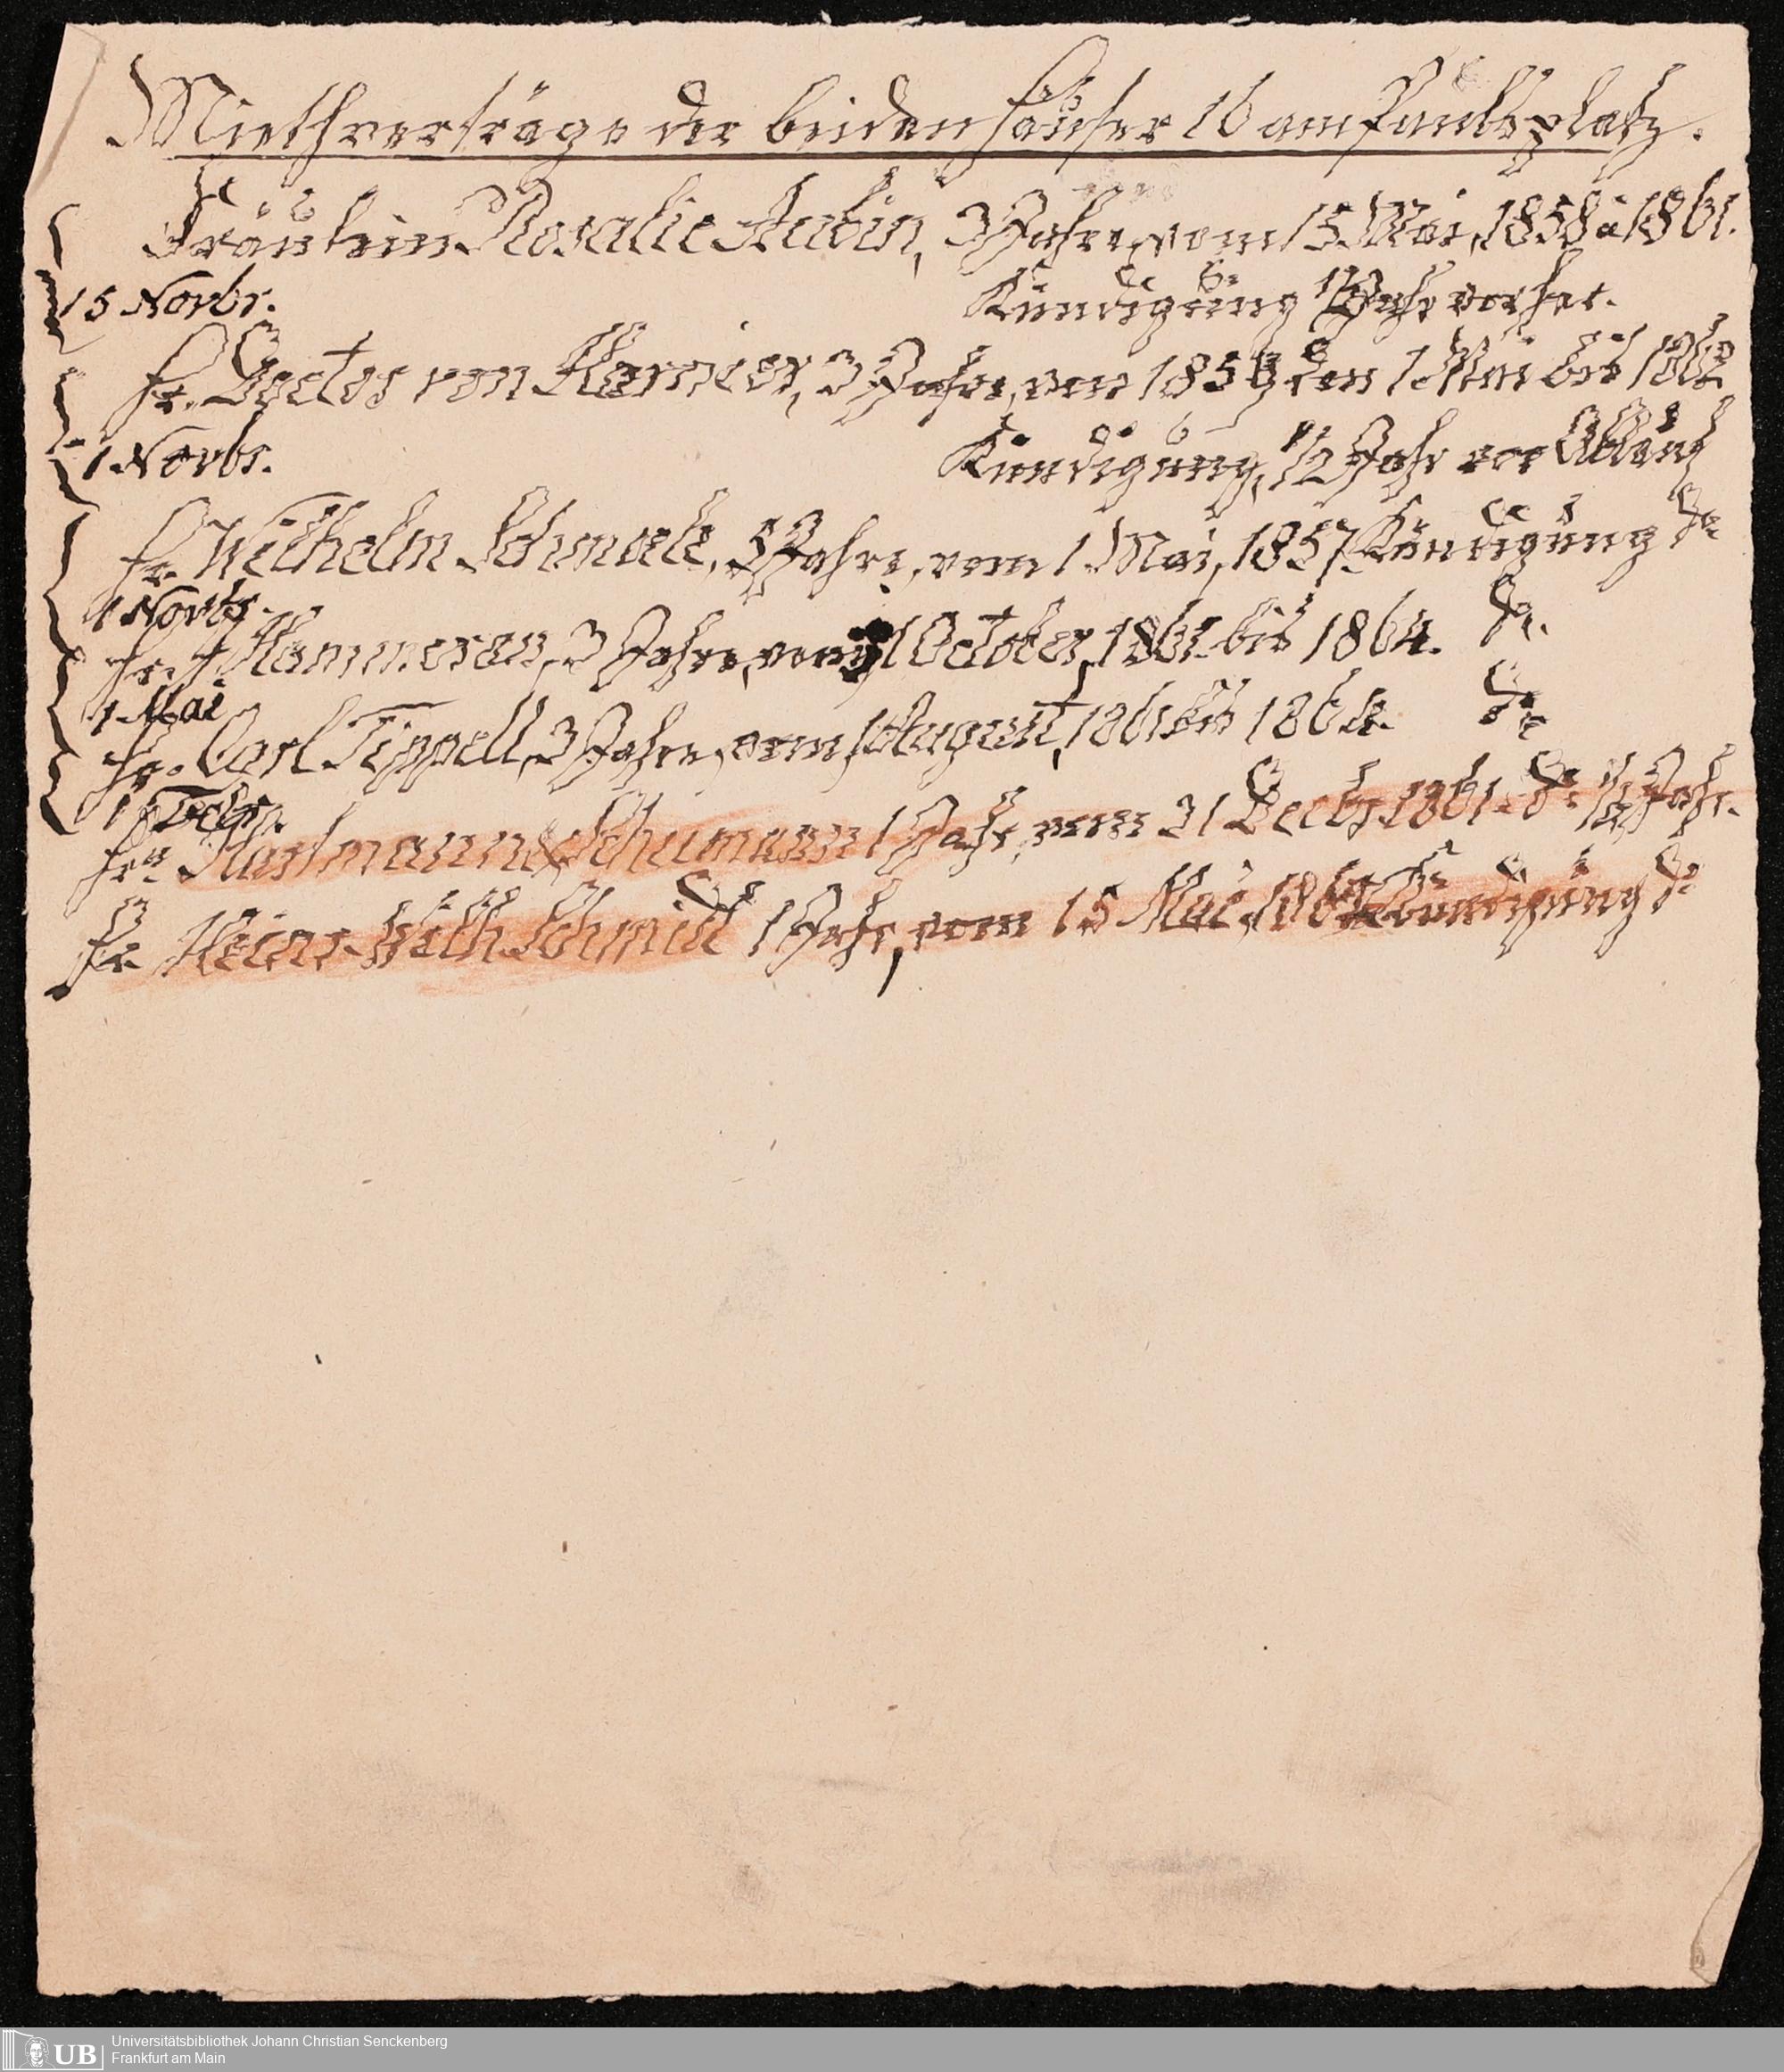 Miethverträge der beiden Häuser 16 am Paulsplatz.
Fräulein Rosalie Aubin, 3 Jahre, vom 15 Mai, 1858 a 1861.
15 Novbr. Kündigung 1/2 Jahr vorher.
Hr. Doctor von Harnier, 3 Jahre, von 1859 den 1 Mai bis 1862
1 Novbr. Kündigung, 1/2 Jahr vor Ablauf
Hr. Wilhelm Schmale, 5 Jahre, vom 1 Mai, 1857. Kündigung do
1 Novbr.
Hr. Hammeran, 3 Jahre, vom 1 October, 1861 bis 1864. do.
1 Mai
Hr. Carl Tippell, 3 Jahre, vom 1 August, 1861 bis 1864. do
1 Febr.
Hrn Hartmann & Schumann 1 Jahr, vom 31 Decbr. 1861. do 1/4 Jahr.
Hr. Heinr. Wilh. Schmidt 1 Jahr, vom 15 Mai, Kündigung do
UB
Universitätsbibliothek Johann Christian Senckenberg
Frankfurt am Main